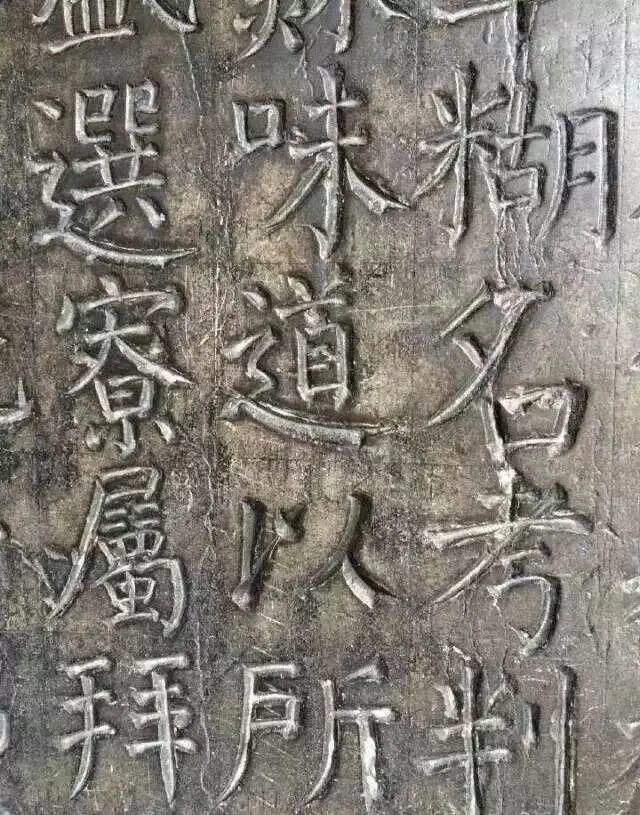 糊名考判
味道以所
選寮屬拜